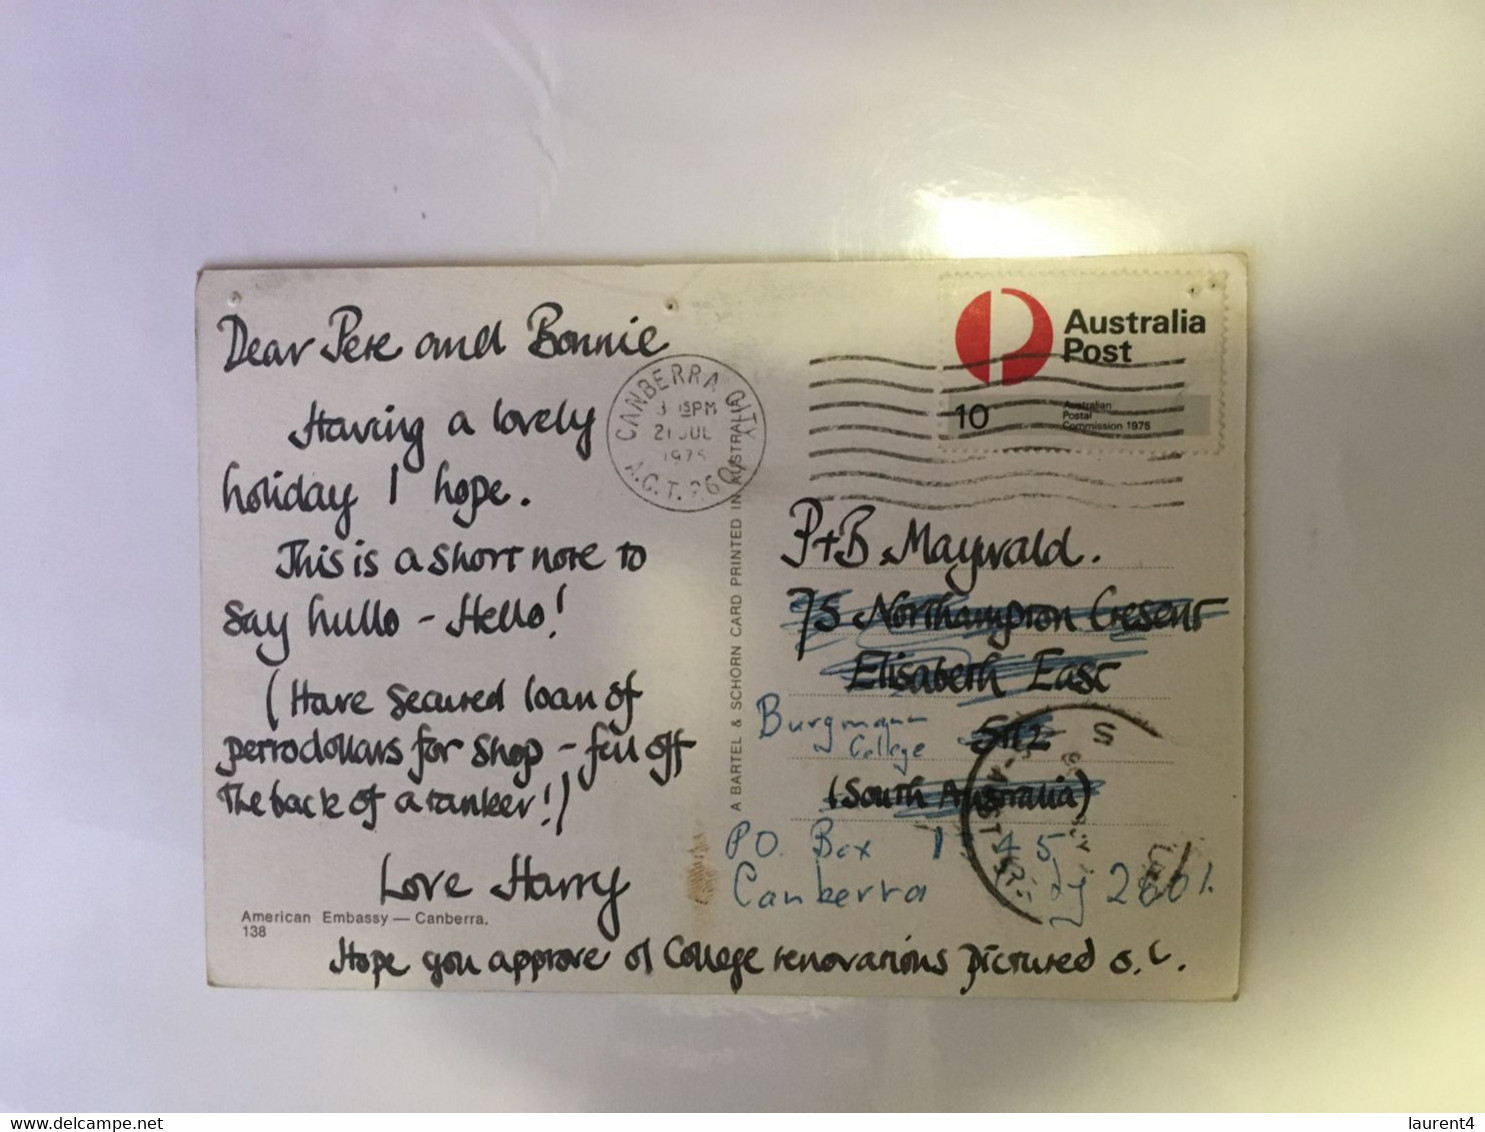 Dear Pete and Bonnie
Having a lovely
holiday I hope.
This is a short note to
say hullo - Hello!
(Have secured loan of
petrodollars for shop - fell off
the back of a tanker!)
Love Harry
American Embassy — Canberra.
138
Hope you approve of College renovations pictured o.l.
CANBERRA CITY
PM
21 JUL
1975
A.C.T. 2601
A BARTEL & SCHORN CARD PRINTED IN AUSTRALIA
Australia
Post
10
Australian
Postal
Commission 1975
P+B Maywald.
75 Northampton Cresent
Elisabeth East
5112
Burgmann
College
(South Australia)
P.O. Box 1 45
Canberra 2601.
laurent4